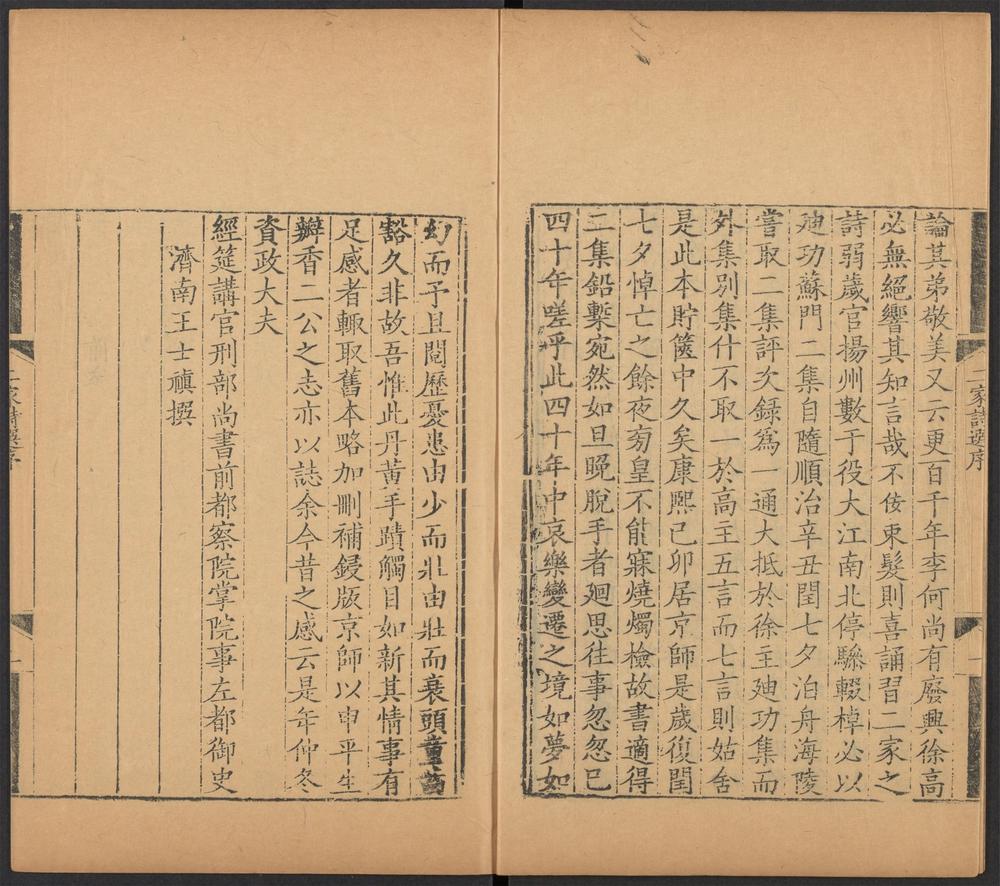 論其弟敬美又云更百千年李何尚有廢興徐高
必無絕響其知言哉不佞束髮則喜誦習二家之
詩弱歲官揚州數于役大江南北停驂輟棹必以
廸功蘇門二集自隨順治辛丑閏七夕泊舟海陵
嘗取二集評次録爲一通大抵於徐主廸功集而
外集別集什不取一於高主五言而七言則姑舍
是此本貯篋中久矣康熙己卯居京師是歲復閏
七夕悼亡之餘夜旁皇不能寐燒燭檢故書適得
二集鉛槧宛然如旦晚脫手者廻思往事忽忽已
四十年嗟乎此四十年中哀樂變遷之境如夢如
二家詩選序
一
幻而予且閱歷憂患由少而壯由壯而衰頭童齒
豁久非故吾惟此丹黃手蹟觸目如新其情事有
足感者輙取舊本略加刪補鋟版京師以申平生
瓣香二公之志亦以誌余今昔之感云是年仲冬
資政大夫
經筵講官刑部尚書前都察院掌院事左都御史
濟南王士禛撰
二家詩選序